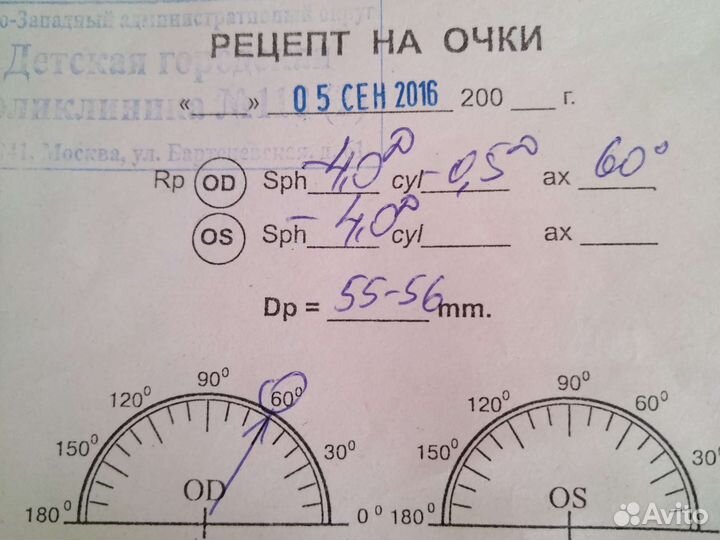 о-Западный административный округ
Детская городская
оликлиника №11
41, Москва, ул. Бартеневская, д. 61
РЕЦЕПТ НА ОЧКИ
« » 05 СЕН 2016 200 ___ г.
Rp OD Sph -4,0D cyl -0,5D ax 60°
OS Sph -4,0D cyl ___ ax ___
Dp = 55-56 mm.
180° 150° 120° 90° 60° 30° 0°
OD
180° 150° 120° 90° 60° 30
OS
Avito